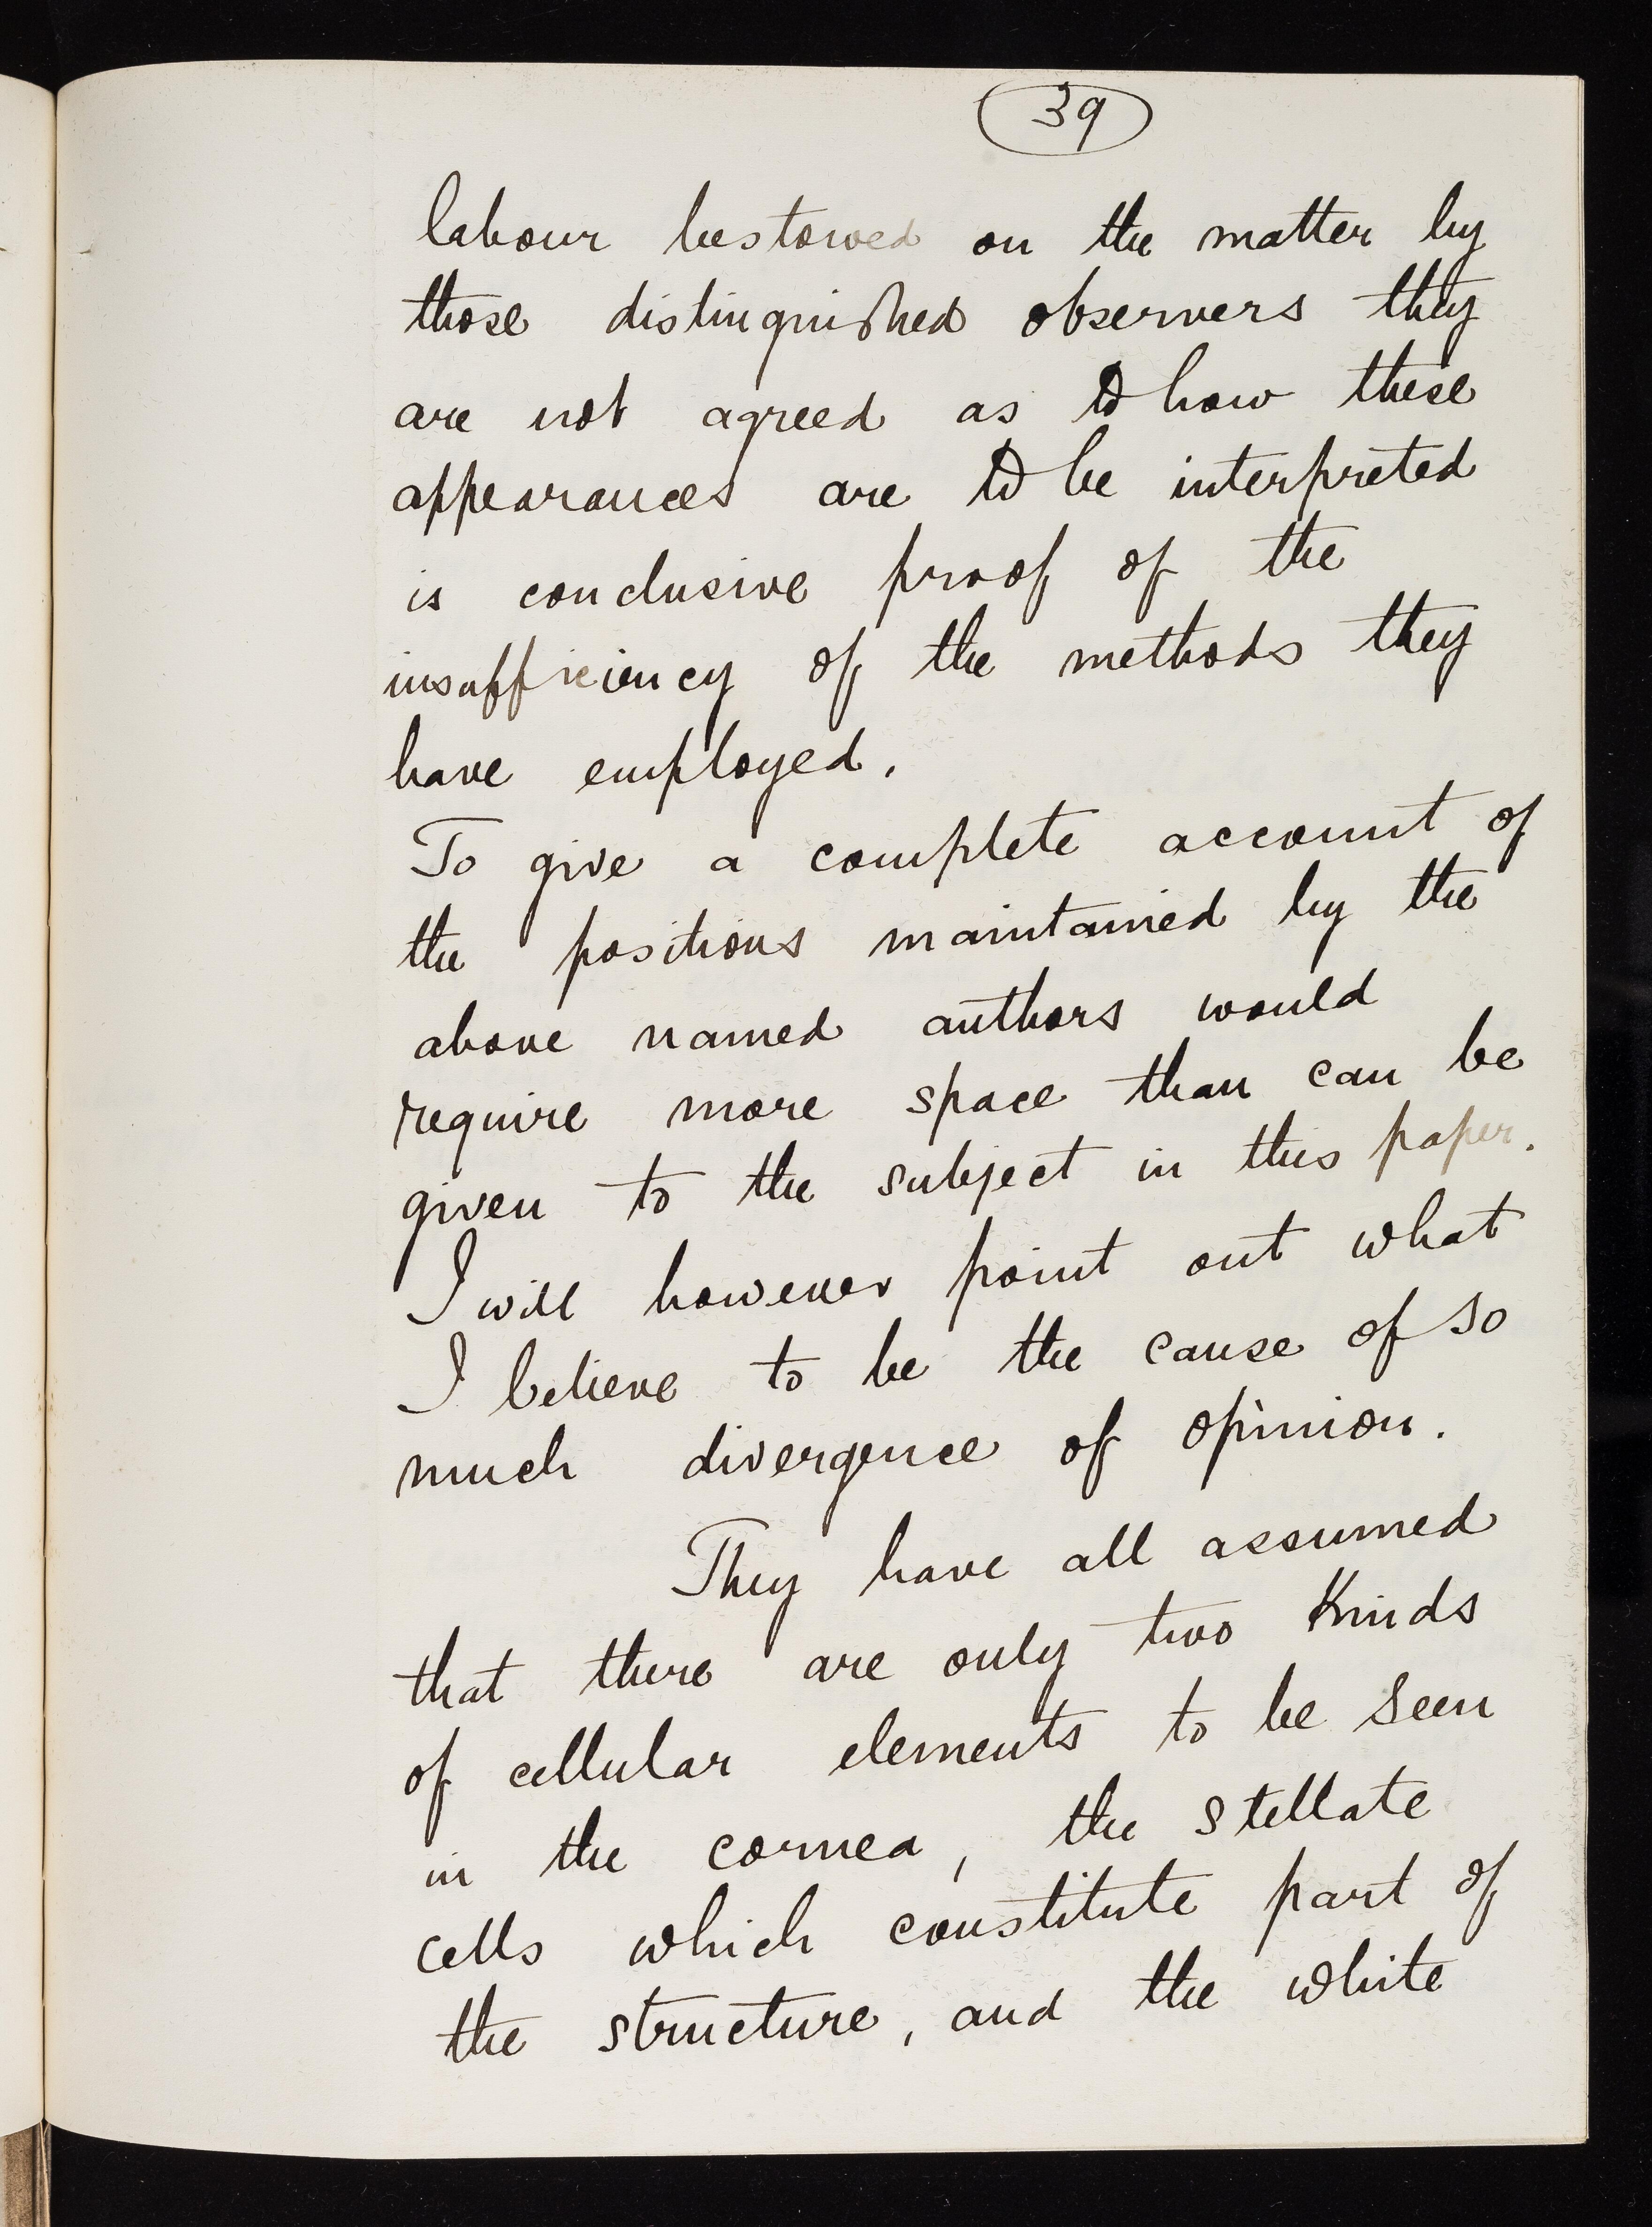 39
labour bestowed on the matter by
those distinguished observers they
are not agreed as to how these
appearances are to be interpreted
is conclusive proof of the
insufficiency of the methods they
have employed.
To give a complete account of
the positions maintained by the
above named authors would
require more space than can be
given to the subject in this paper.
I will however point out what
I believe to be the cause of so
much divergence of opinion.
They have all assumed
that there are only two Kinds
of cellular elements to be seen
in the cornea, the stellate
cells which constitute part of
the structure, and the white